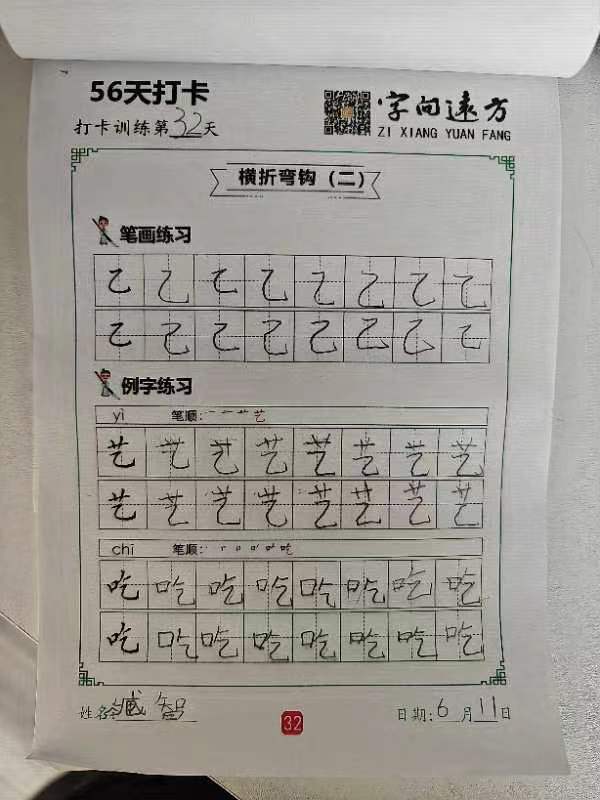 56天打卡
打卡训练第32天
字向远方
ZI XIANG YUAN FANG
横折弯钩（二）
笔画练习
乙 乙 乙 乙 乙 乙 乙 乙
乙 乙 乙 乙 乙 乙 乙 乙
例字练习
yì 笔顺: 一 十 艹 艺
艺 艺 艺 艺 艺 艺 艺 艺
艺 艺 艺 艺 艺 艺 艺 艺
chī 笔顺:
吃 吃 吃 吃 吃 吃 吃 吃
吃 吃 吃 吃 吃 吃 吃 吃
姓名: 臧智
32
日期: 6月11日